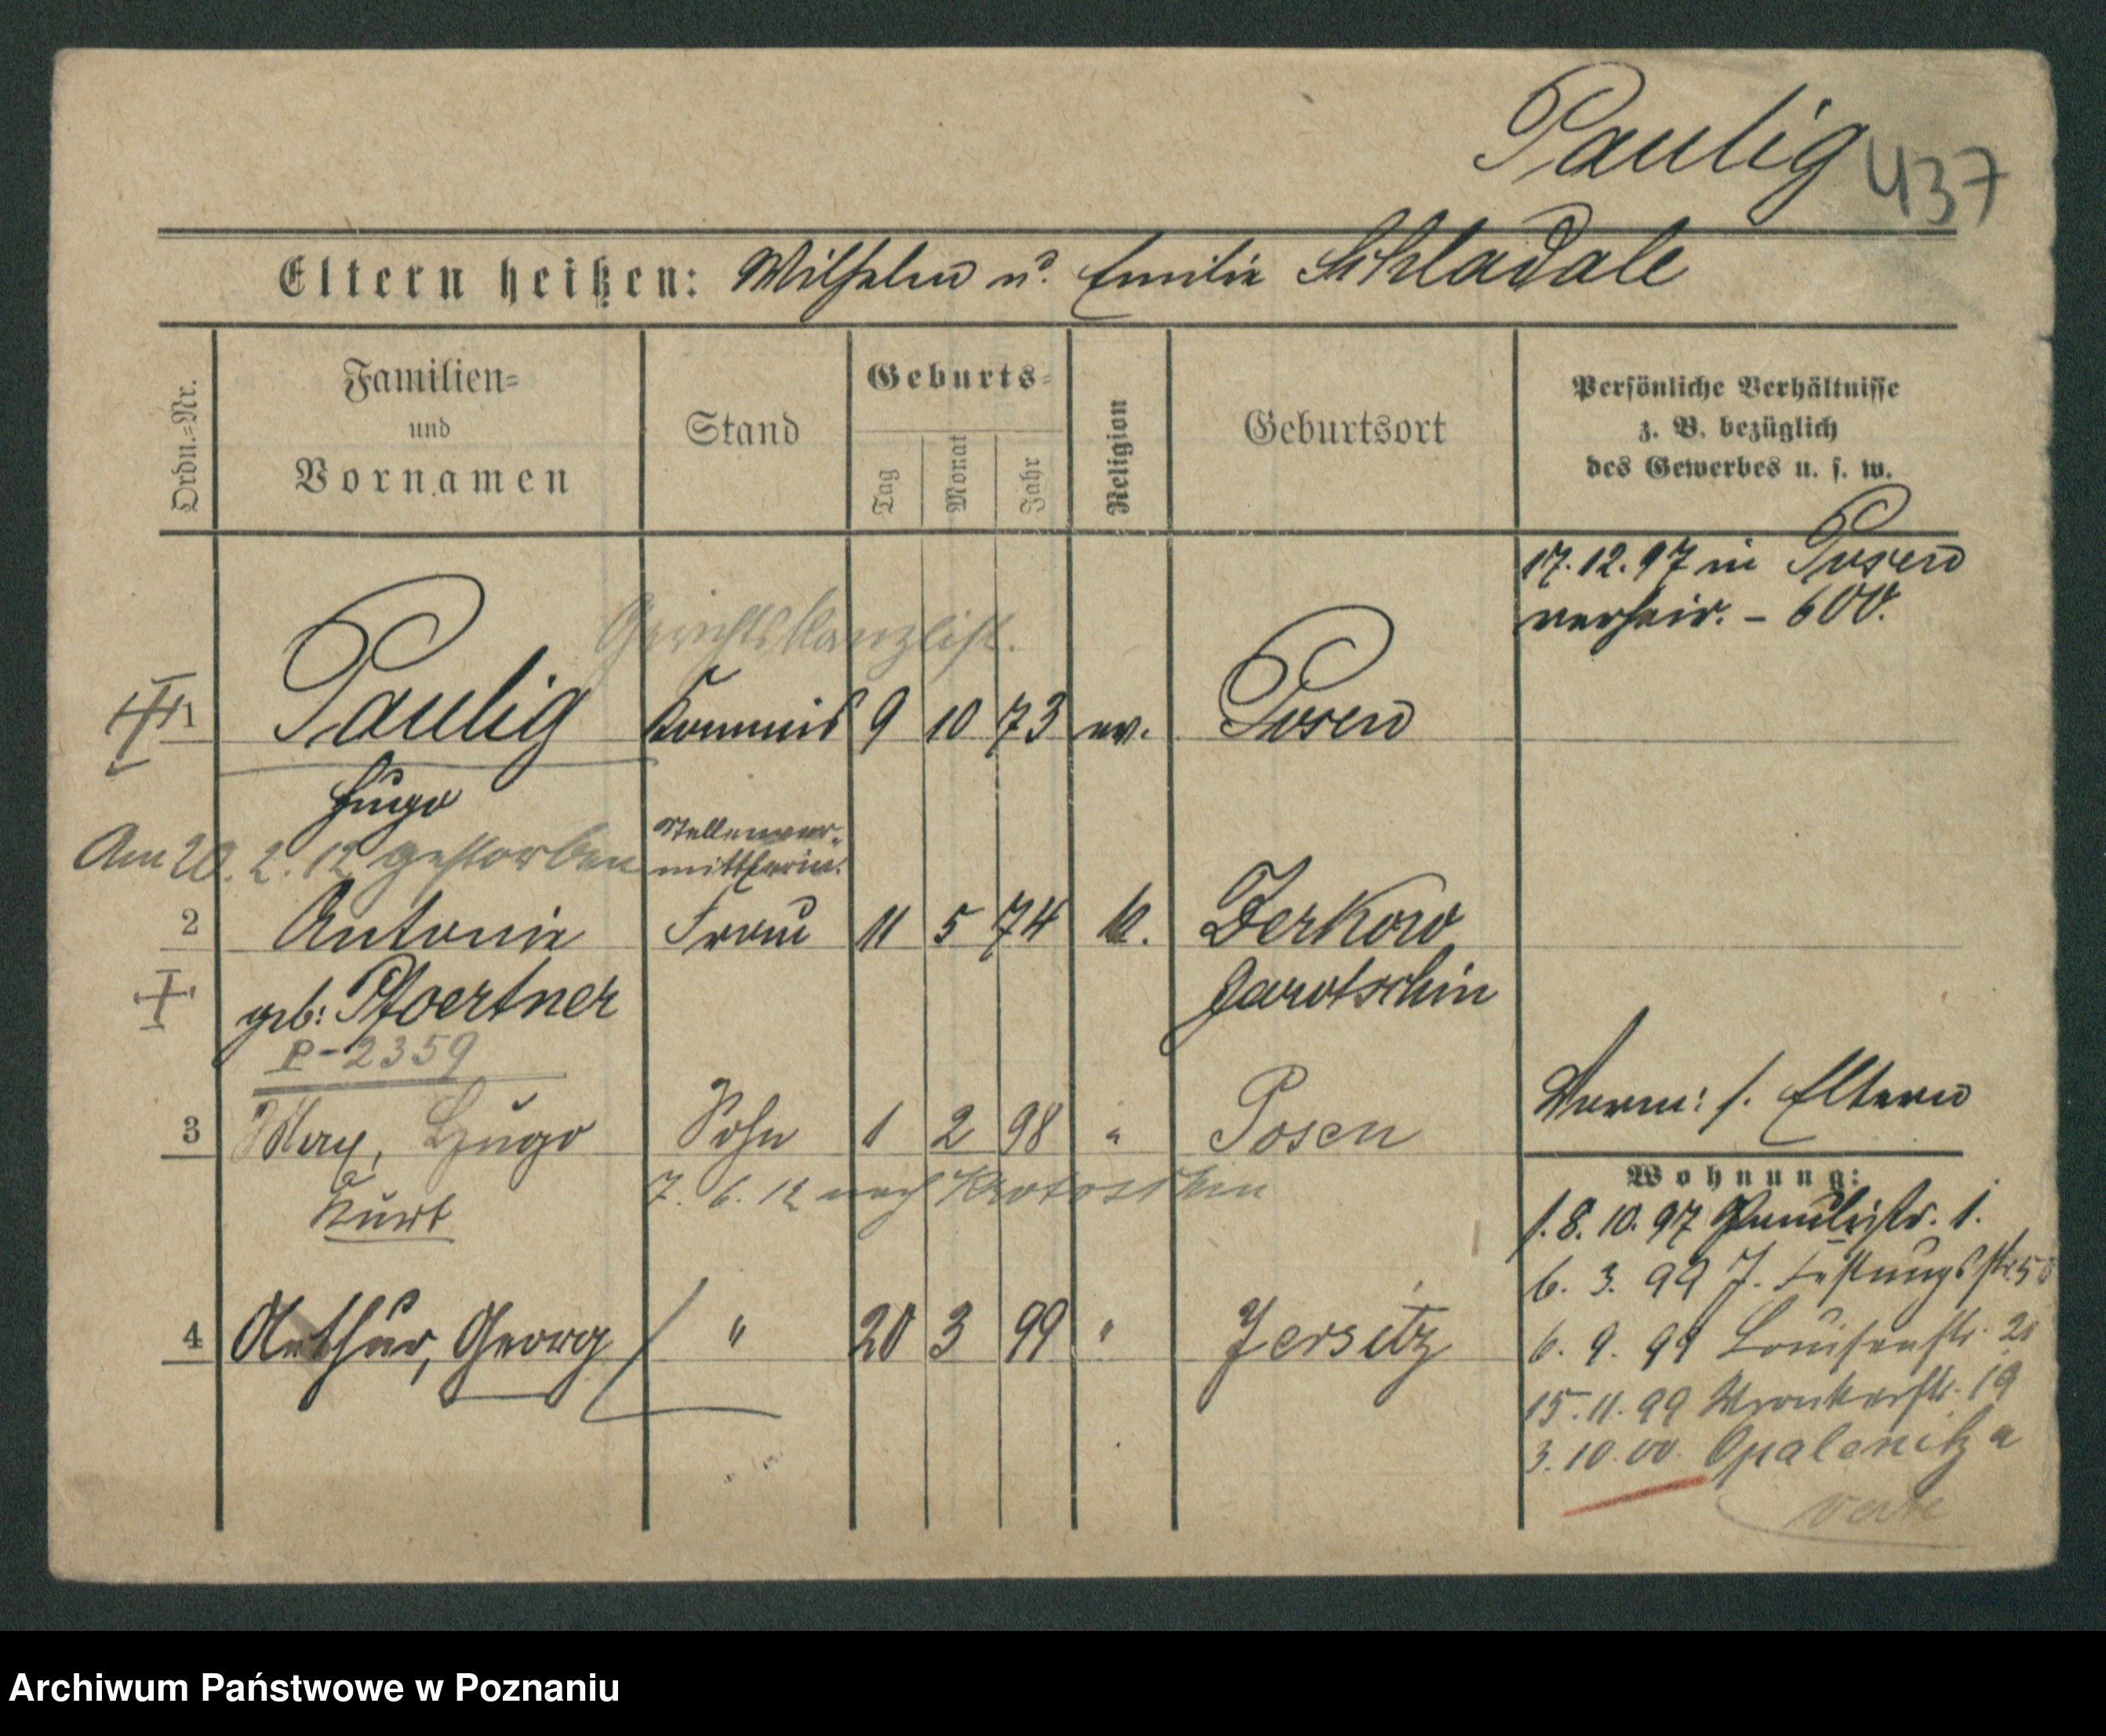 Paulig 437
Eltern heißen: Wilhelm u. Emilie Schladale
Ordn.=Nr.
Familien=
und
Vornamen
Stand
Geburts=
Tag
Monat
Jahr
Religion
Geburtsort
Persönliche Verhältnisse
z. B. bezüglich
des Gewerbes u. s. w.
17.12.97 in Posen
verheir. – 600.
Gerichtskanzlist.
1 Paulig Kommis 9 10 73 ev. Posen
Hugo
Am 20. 2. 12 gestorben
Stellenver-
mittlerin.
2 Antonie Frau 11 5 74 k. Zerkow
geb: Pfoertner Jarotschin
P-2359
3 Max, Hugo Sohn 1 2 98 " Posen
Kurt
7. 6. 12 nach Krotoschin
4 Arthur, Georg " 20 3 99 " Jersitz
Verm: s. Eltern
Wohnung:
1. 8. 10. 97 Paulistr. 1.
6. 3. 99 J. Festungsstr.
6. 9. 99 Louisenstr.
15. 11. 99 Wronkerstr. 19
3. 10. 00. Opalenitza
verte
Archiwum Państwowe w Poznaniu